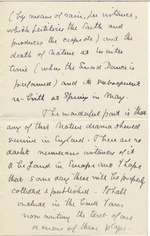 (by means of rain, for instance,
which fertilizes the Earth and
produces the crops etc) and the
death of Nature at Winter
time (when the Sword Dance is
performed) and its subsequent
re-birth at Spring in May.
The wonderful part is that
any of this Nature drama should
survive in England. There are no
doubt numerous instances of it
to be found in Europe and I hope
that some day these will be properly
collected & published. I shall
include in the book I am
now writing the text of one
or more of these plays.